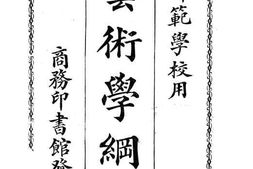 範學校用
藝術學綱
商務印書館發